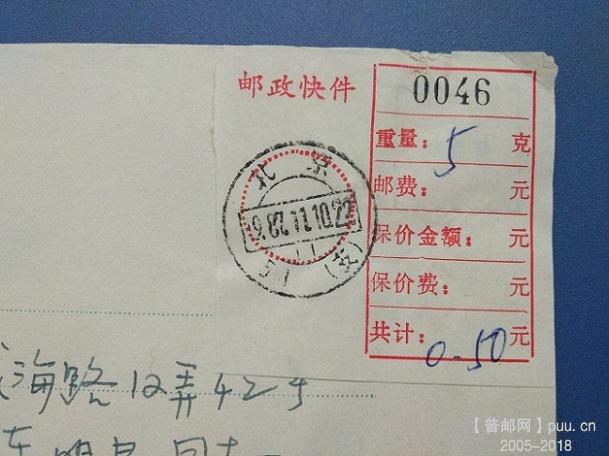 邮政快件
0046
重量: 5 克
邮费: 元
保价金额: 元
保价费: 元
共计: 0.50 元
北京
51 (支)
海路12弄42号
【普邮网】puu.cn
2005-2018